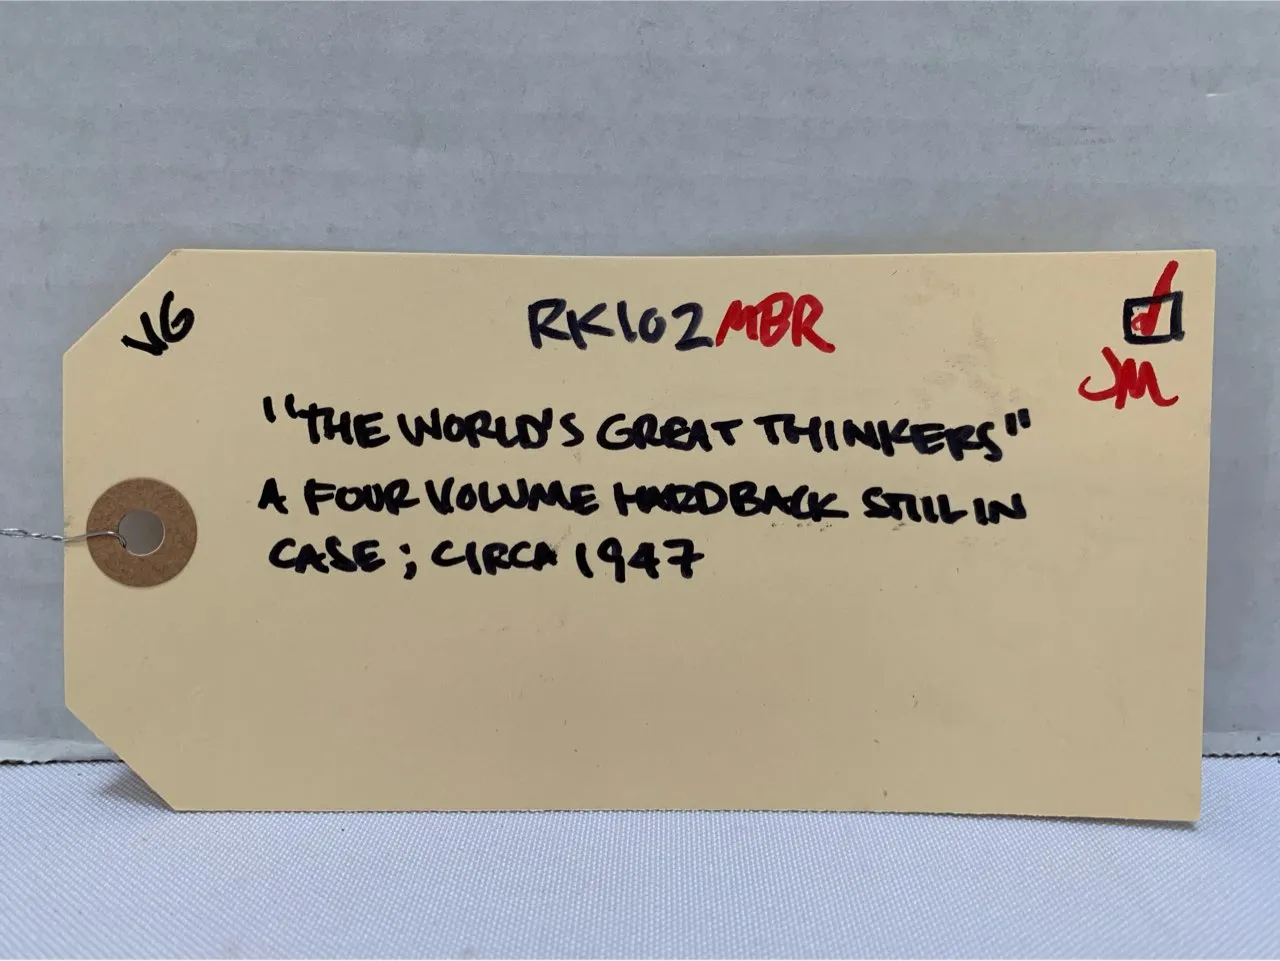 VG
RK102MBR
JM
"THE WORLD'S GREAT THINKERS"
A FOUR VOLUME HARDBACK STILL IN
CASE; CIRCA 1947